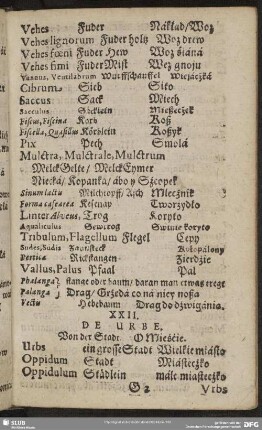 Vehes Fuder Náklad/Woz
Vehes lignorum Fuder holtz Woz drew
Vehes fœni Fuder Hew Woz śiáná
Vehes fimi Fuder Mist Wez gnoju
Vannus, Ventilabrum Wurffschauffel Wiejáczká
Cibrum Sieb Sito
Saccus Sack Miech
Sacculus Säcklein Mieszeczek
Fiscus, Fiscina Korb Kosz
Fiscella, Quasillus Körblein Koszyk
Pix Pech Smolá
Mulctra, Mulctrale, Mulctrum
Melck Gelte/ Melck Eymer
Niecká/ Kopanká/ ábo y Szcopek
Sinum lactu Milchtopff/ Asch Mlecznik
Forma casearea Kesenap Tworzydło
Linter Alveus, Trog Koryto
Aqualiculus Sewtrog Swinie koryto
Tribulum, Flagellum Flegel Cepy
Pertica Rickstangen Zierdzie
Vallus, Palus Pfaal Pál
Phalanga stange oder baum/ daran man etwas tregt
Palanga Drag/ Grzędá co ná niey noszą
Vectis Hebebaum Drag do dzwigánia.
XXII.
DE URBE.
Von der Stadt O Mieśćie.
Urbs ein grosse Stadt Wielkie miásto
Oppidum Stadt Miásteczko
Oppidulum Städtlein máłe miásteczko
G 2 Vrbs
SLUB
DFG